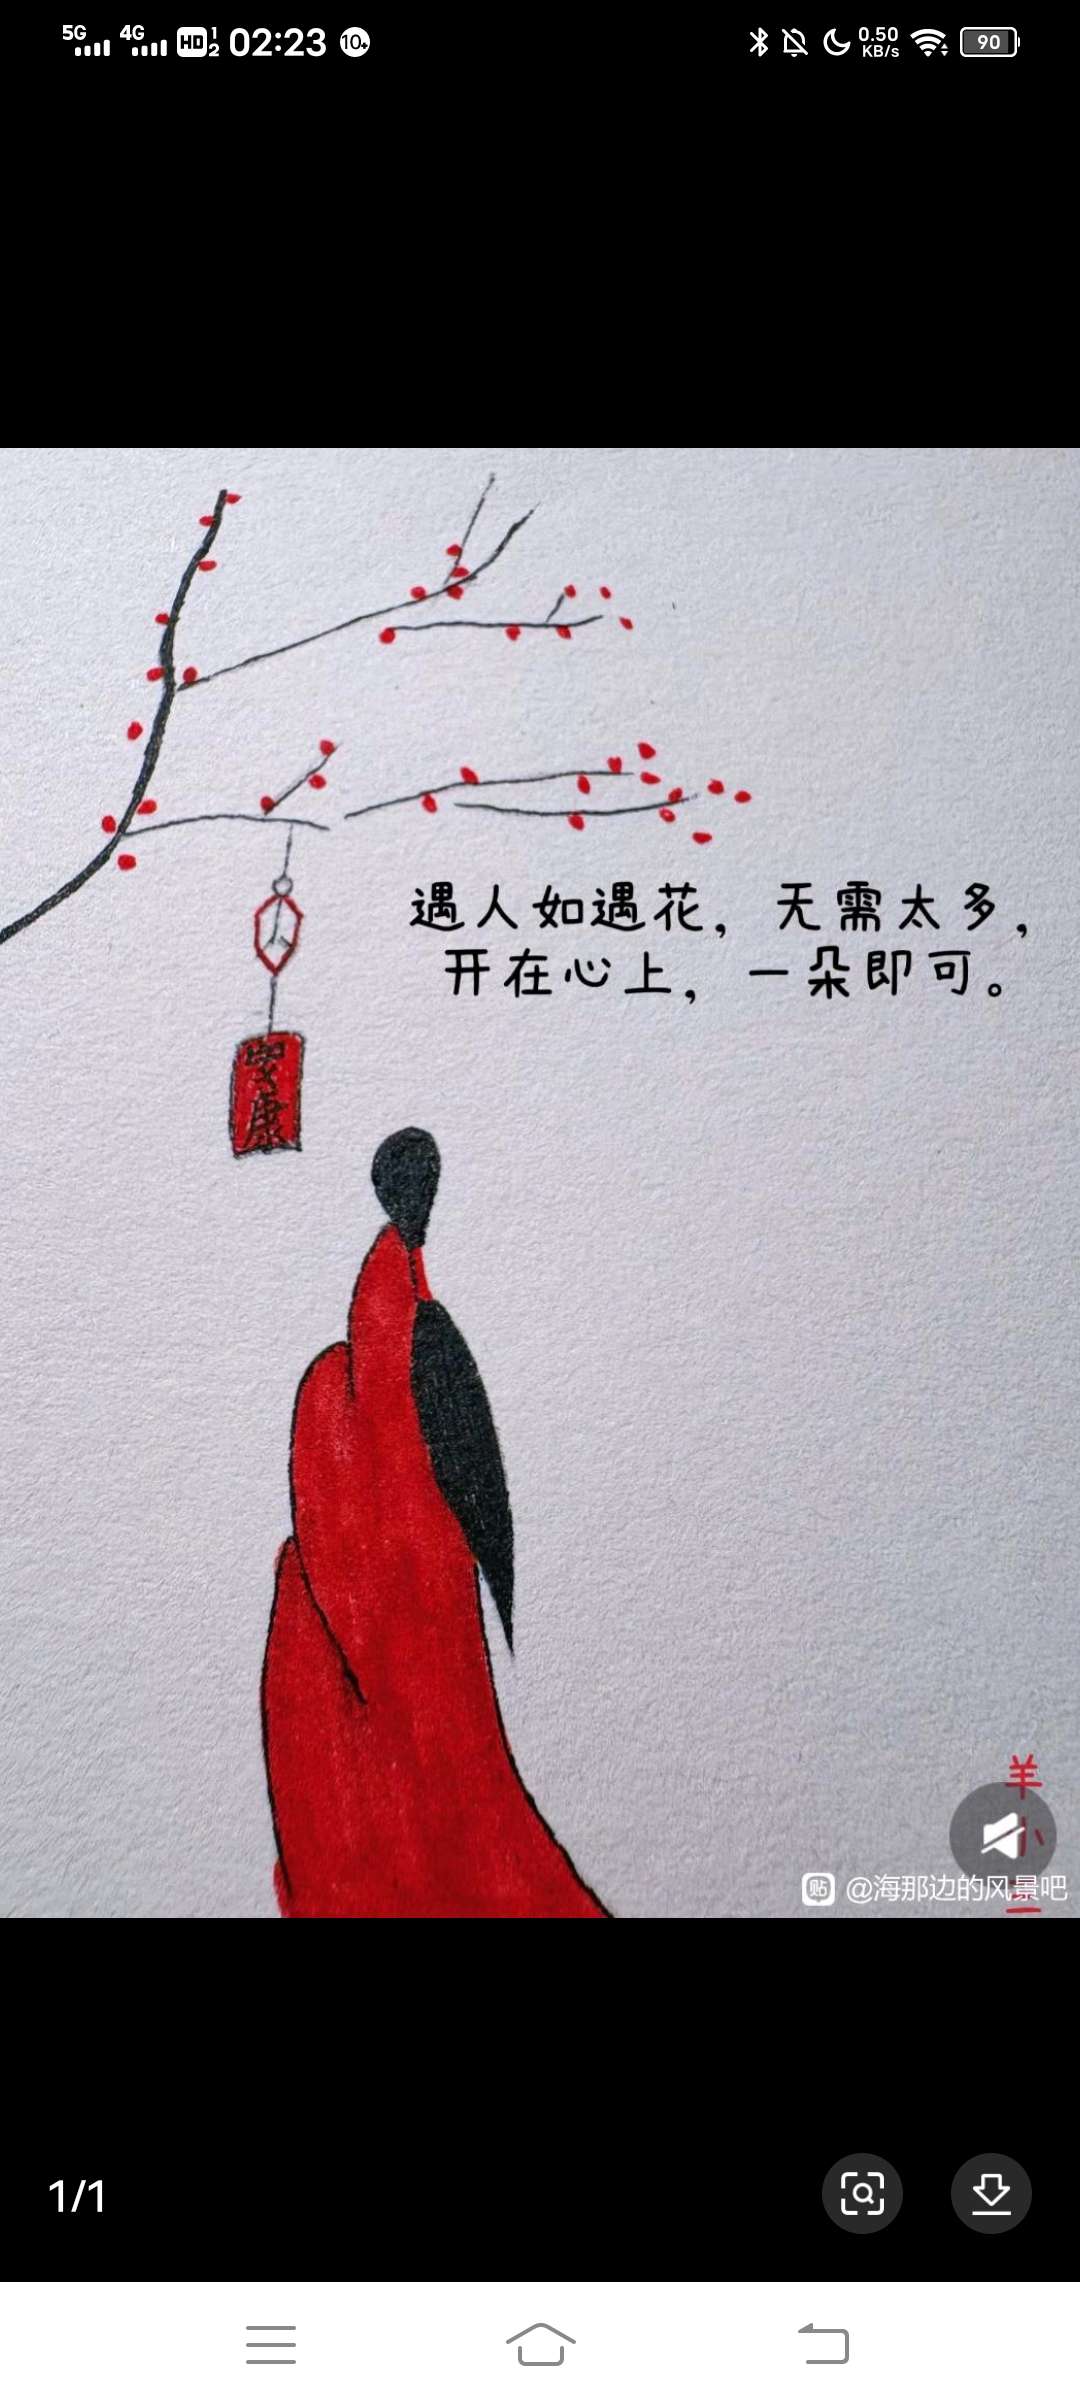 5G 4G HD 1 2 02:23 10+ 0.50 KB/s 90
遇人如遇花，无需太多，
开在心上，一朵即可。
安康
羊
小
@海那边的风景吧
贴
1/1